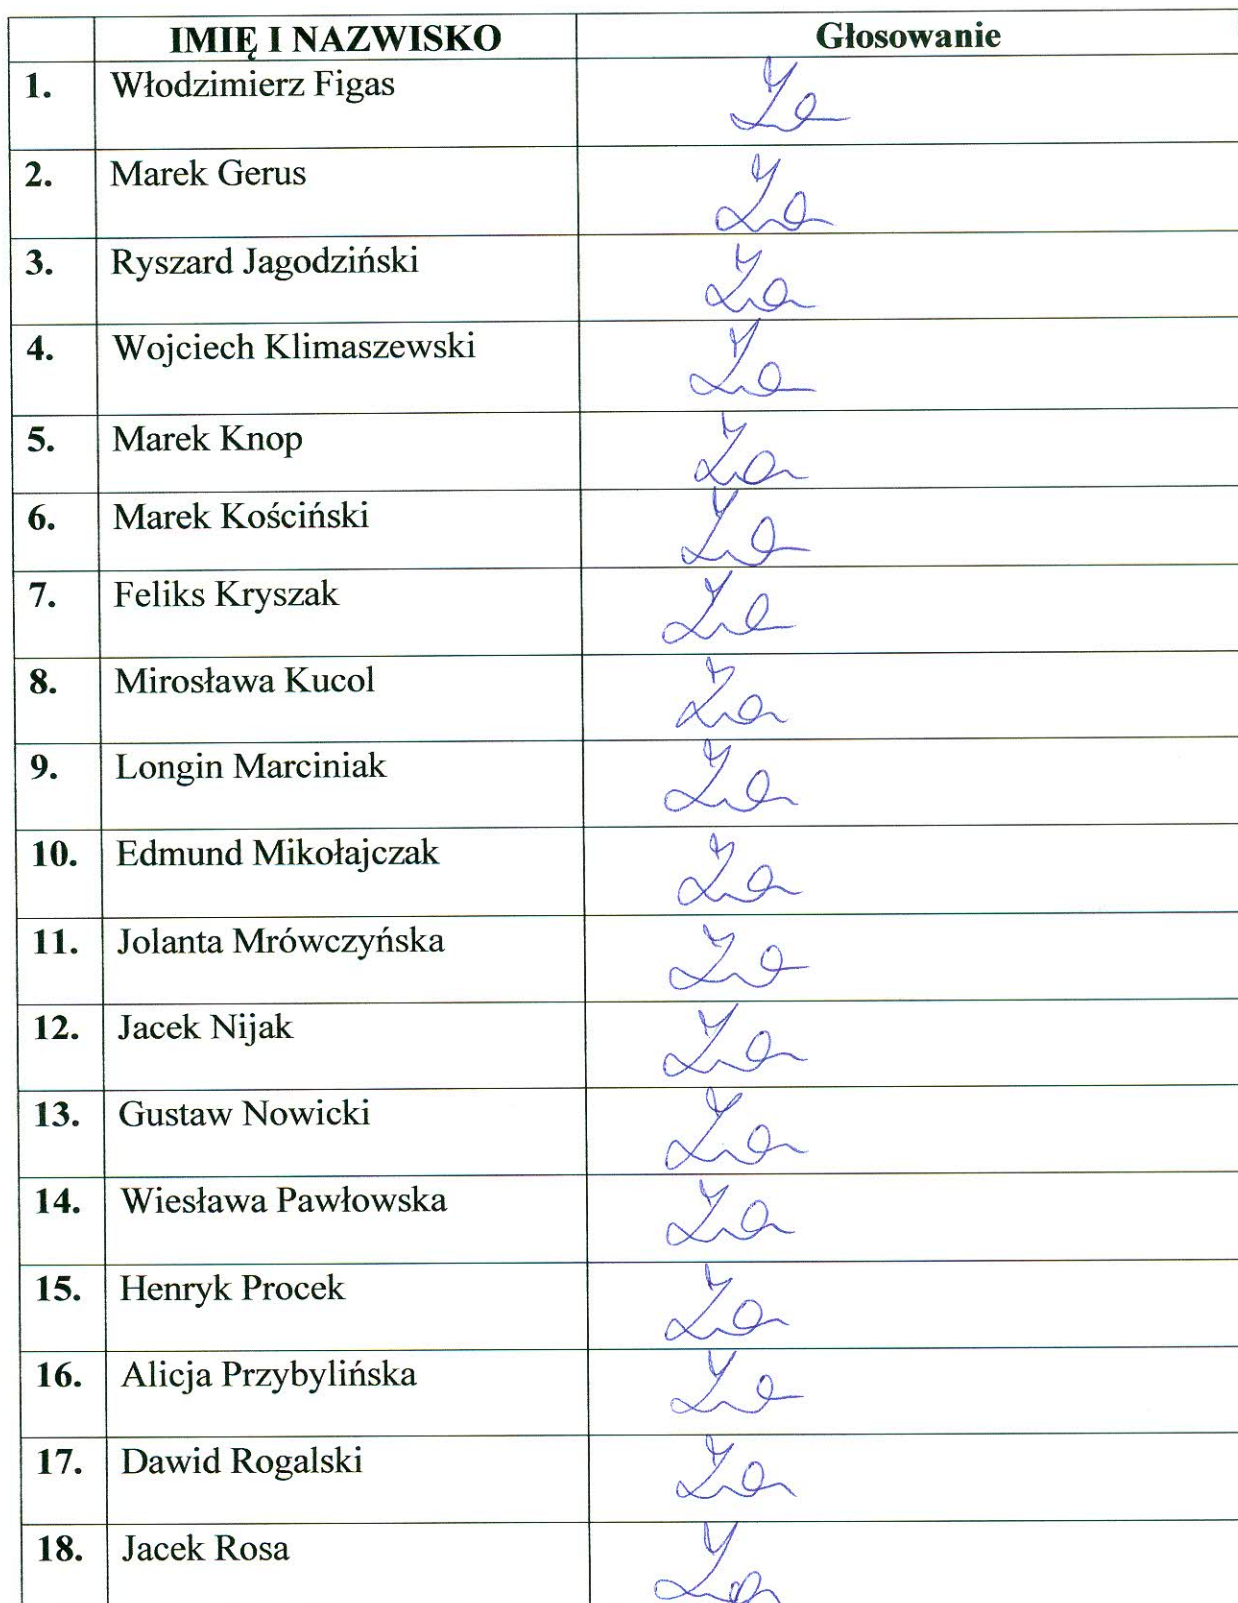 IMIĘ I NAZWISKO Głosowanie
1. Włodzimierz Figas Za
2. Marek Gerus Za
3. Ryszard Jagodziński Za
4. Wojciech Klimaszewski Za
5. Marek Knop Za
6. Marek Kościński Za
7. Feliks Kryszak Za
8. Mirosława Kucol Za
9. Longin Marciniak Za
10. Edmund Mikołajczak Za
11. Jolanta Mrówczyńska Za
12. Jacek Nijak Za
13. Gustaw Nowicki Za
14. Wiesława Pawłowska Za
15. Henryk Procek Za
16. Alicja Przybylińska Za
17. Dawid Rogalski Za
18. Jacek Rosa Za